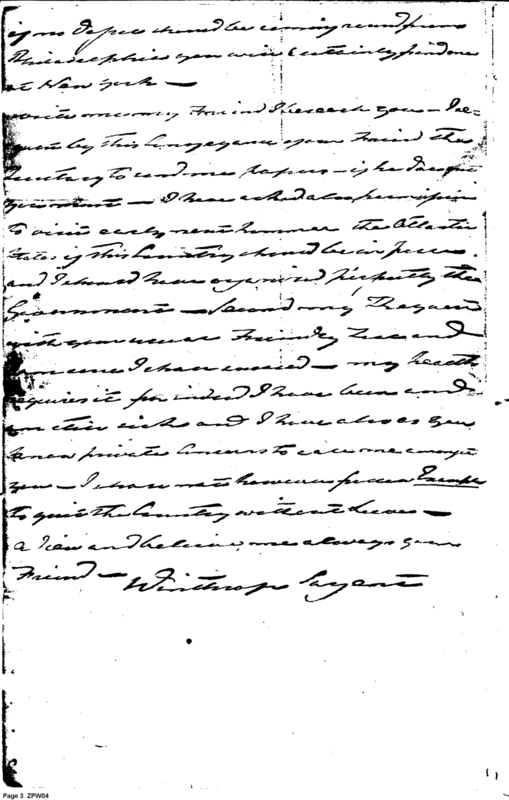 if no Ships should be coming round from
Philadelphia you will certainly find one
at New York —
write me my Friend I beseech you — I re-
quest by this Conveyance your Friend the
Secretary to send me papers — if he
— I have asked also permission
to visit early next Summer the Atlantic
States if this Country should be in peace
and I should have organized perfectly the
Government — Second my Request
with your usual Friendly Zeal and
I shall succeed — my health
requires it for indeed I have been and
am still sick and I have also as you
know private Concerns to call me amongst
you — I shall not however follow Example
to quit the Country without Leave —
Adieu and believe me always your
Friend —
Winthrop Sargent
Page 3 ZPW04